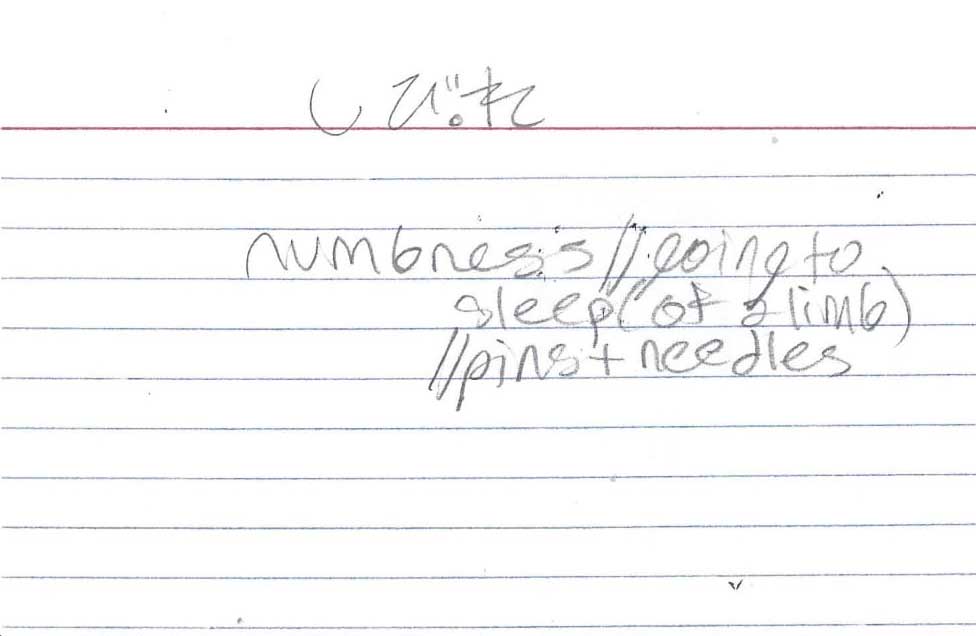 しびれ
numbness//going to
sleep(of a limb)
//pins+needles